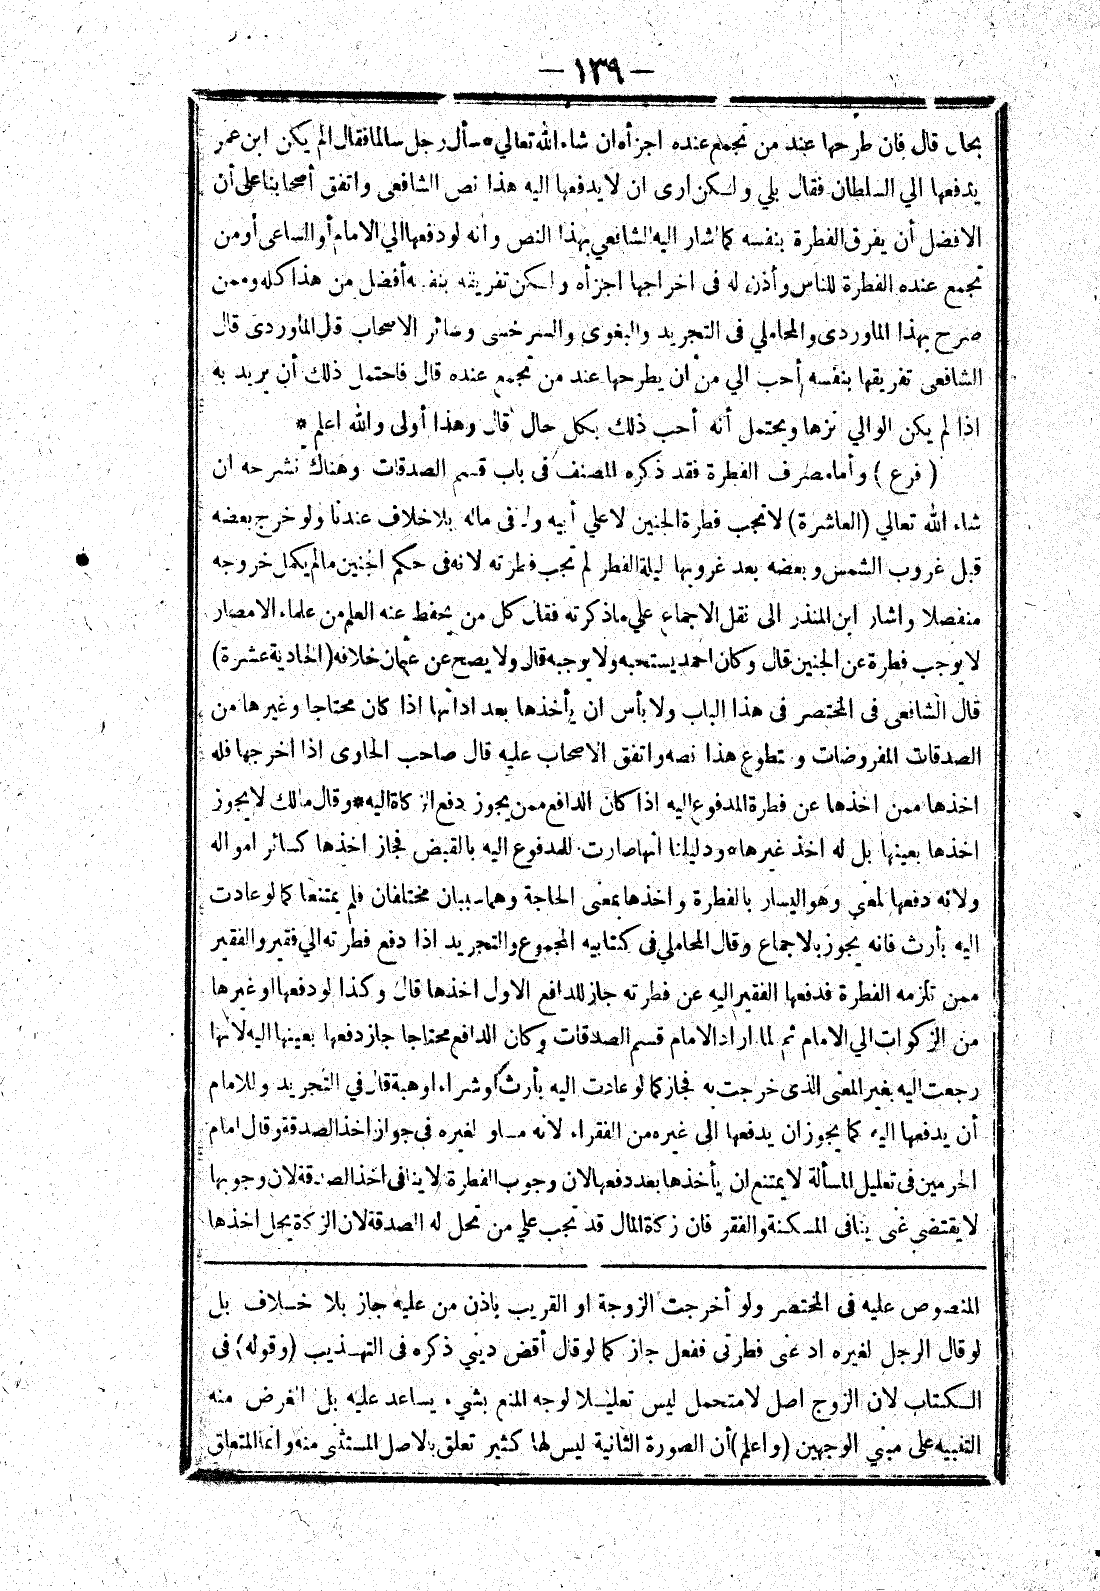 — ١٣٩ —
بحال قال فان طرحها عند من تجمع عنده اجزأه ان شاء الله تعالي * سأل رجل سالما فقال الم يكن ابن عمر
يدفعها الي السلطان فقال بلي ولكن ارى ان لا يدفعها اليه هذا نص الشافعى واتفق أصحابنا على أن
الافضل أن يفرق الفطرة بنفسه كما اشار اليه الشافعي بهذا النص وانه لو دفعها الي الامام أو الساعى أو من
تجمع عنده الفطرة للناس وأذن له فى اخراجها اجزأه ولكن تفريقه بنفسه أفضل من هذا كله وممن
صرح بهذا الماوردى والمحاملي فى التجريد والبغوى والسرخسى وسائر الاصحاب قال الماوردى قال
الشافعى تفريقها بنفسه أحب الي من أن يطرحها عند من تجمع عنده قال فاحتمل ذلك أن يريد به
اذا لم يكن الوالي نزها ويحتمل أنه أحب ذلك بكل حال قال وهذا أولى والله اعلم *
( فرع ) وأما مصرف الفطرة فقد ذكره المصنف فى باب قسم الصدقات وهناك نشرحه ان
شاء الله تعالي (العاشرة) لا تجب فطرة الجنين لا علي أبيه ولا فى ماله بلا خلاف عندنا ولو خرج بعضه
قبل غروب الشمس وبعضه بعد غروبها ليلة الفطر لم تجب فطرته لانه فى حكم الجنين ما لم يكمل خروجه
منفصلا واشار ابن المنذر الى نقل الاجماع علي ما ذكرته فقال كل من يحفظ عنه العلم من علماء الامصار
لا يوجب فطرة عن الجنين قال وكان احمد يستحبه ولا يوجبه قال ولا يصح عن عثمان خلافه (الحادية عشرة)
قال الشافعى فى المختصر فى هذا الباب ولا بأس ان يأخذها بعد ادائها اذا كان محتاجا وغيرها من
الصدقات المفروضات والتطوع هذا نصه واتفق الاصحاب عليه قال صاحب الحاوى اذا اخرجها فله
اخذها ممن اخذها عن فطرة المدفوع اليه اذا كان الدافع ممن يجوز دفع الزكاة اليه * وقال مالك لا يجوز
اخذها بعينها بل له اخذ غيرها * ودليلنا انها صارت للمدفوع اليه بالقبض فجاز اخذها كسائر امواله
ولانه دفعها لمعنى وهو اليسار بالفطرة واخذها بمعنى الحاجة وهما سببان مختلفان فلم يمتنعا كما لو عادت
اليه بأرث فانه يجوز بالاجماع وقال المحاملي فى كتابيه المجموع والتجريد اذا دفع فطرته الي فقير والفقير
ممن تلزمه الفطرة فدفعها الفقير اليه عن فطرته جاز للدافع الاول اخذها قال وكذا لو دفعها او غيرها
من الزكوات الي الامام ثم لما اراد الامام قسم الصدقات وكان الدافع محتاجا جاز دفعها بعينها اليه لانها
رجعت اليه بغير المعنى الذى خرجت به فجاز كما لو عادت اليه بأرث او شراء او هبة قال في التجريد وللامام
أن يدفعها اليه كما يجوز ان يدفعها الى غيره من الفقراء لانه مساو لغيره فى جواز اخذ الصدقة وقال امام
الحرمين فى تعليل المسألة لا يمتنع ان يأخذها بعد دفعها لان وجوب الفطرة لا ينافى اخذ الصدقة لان وجوبها
لا يقتضي غنى ينافى المسكنة والفقر فان زكاة المال قد تجب علي من تحل له الصدقة لان الزكاة يحل اخذها
المنصوص عليه فى المختصر ولو أخرجت الزوجة او القريب باذن من عليه جاز بلا خلاف بل
لو قال الرجل لغيره اد عنى فطرتى ففعل جاز كما لو قال أقض ديني ذكره فى التهذيب (وقوله) فى
الكتاب لان الزوج اصل لا متحمل ليس تعليلا لوجه المنع بشيء يساعد عليه بل الغرض منه
التنبيه على مبني الوجهين (واعلم) أن الصورة الثانية ليس لها كثير تعلق بالاصل المستثنى منه وانما المتعلق